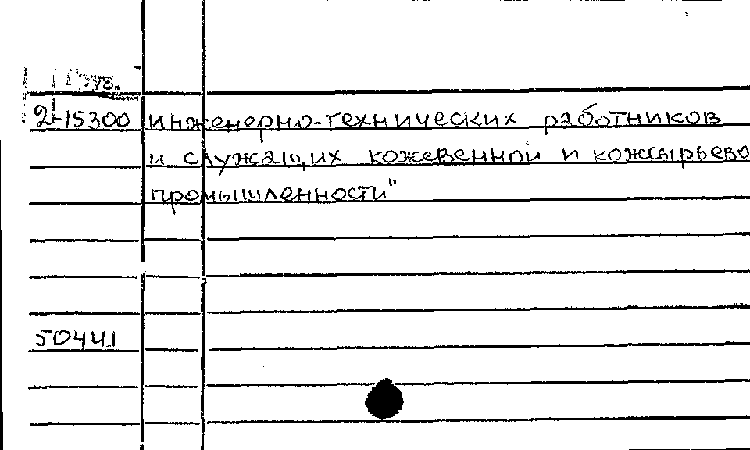 2-15300 инженерно-технических работников
и служащих кожевенной и кожсырьево
промышленности"
50441